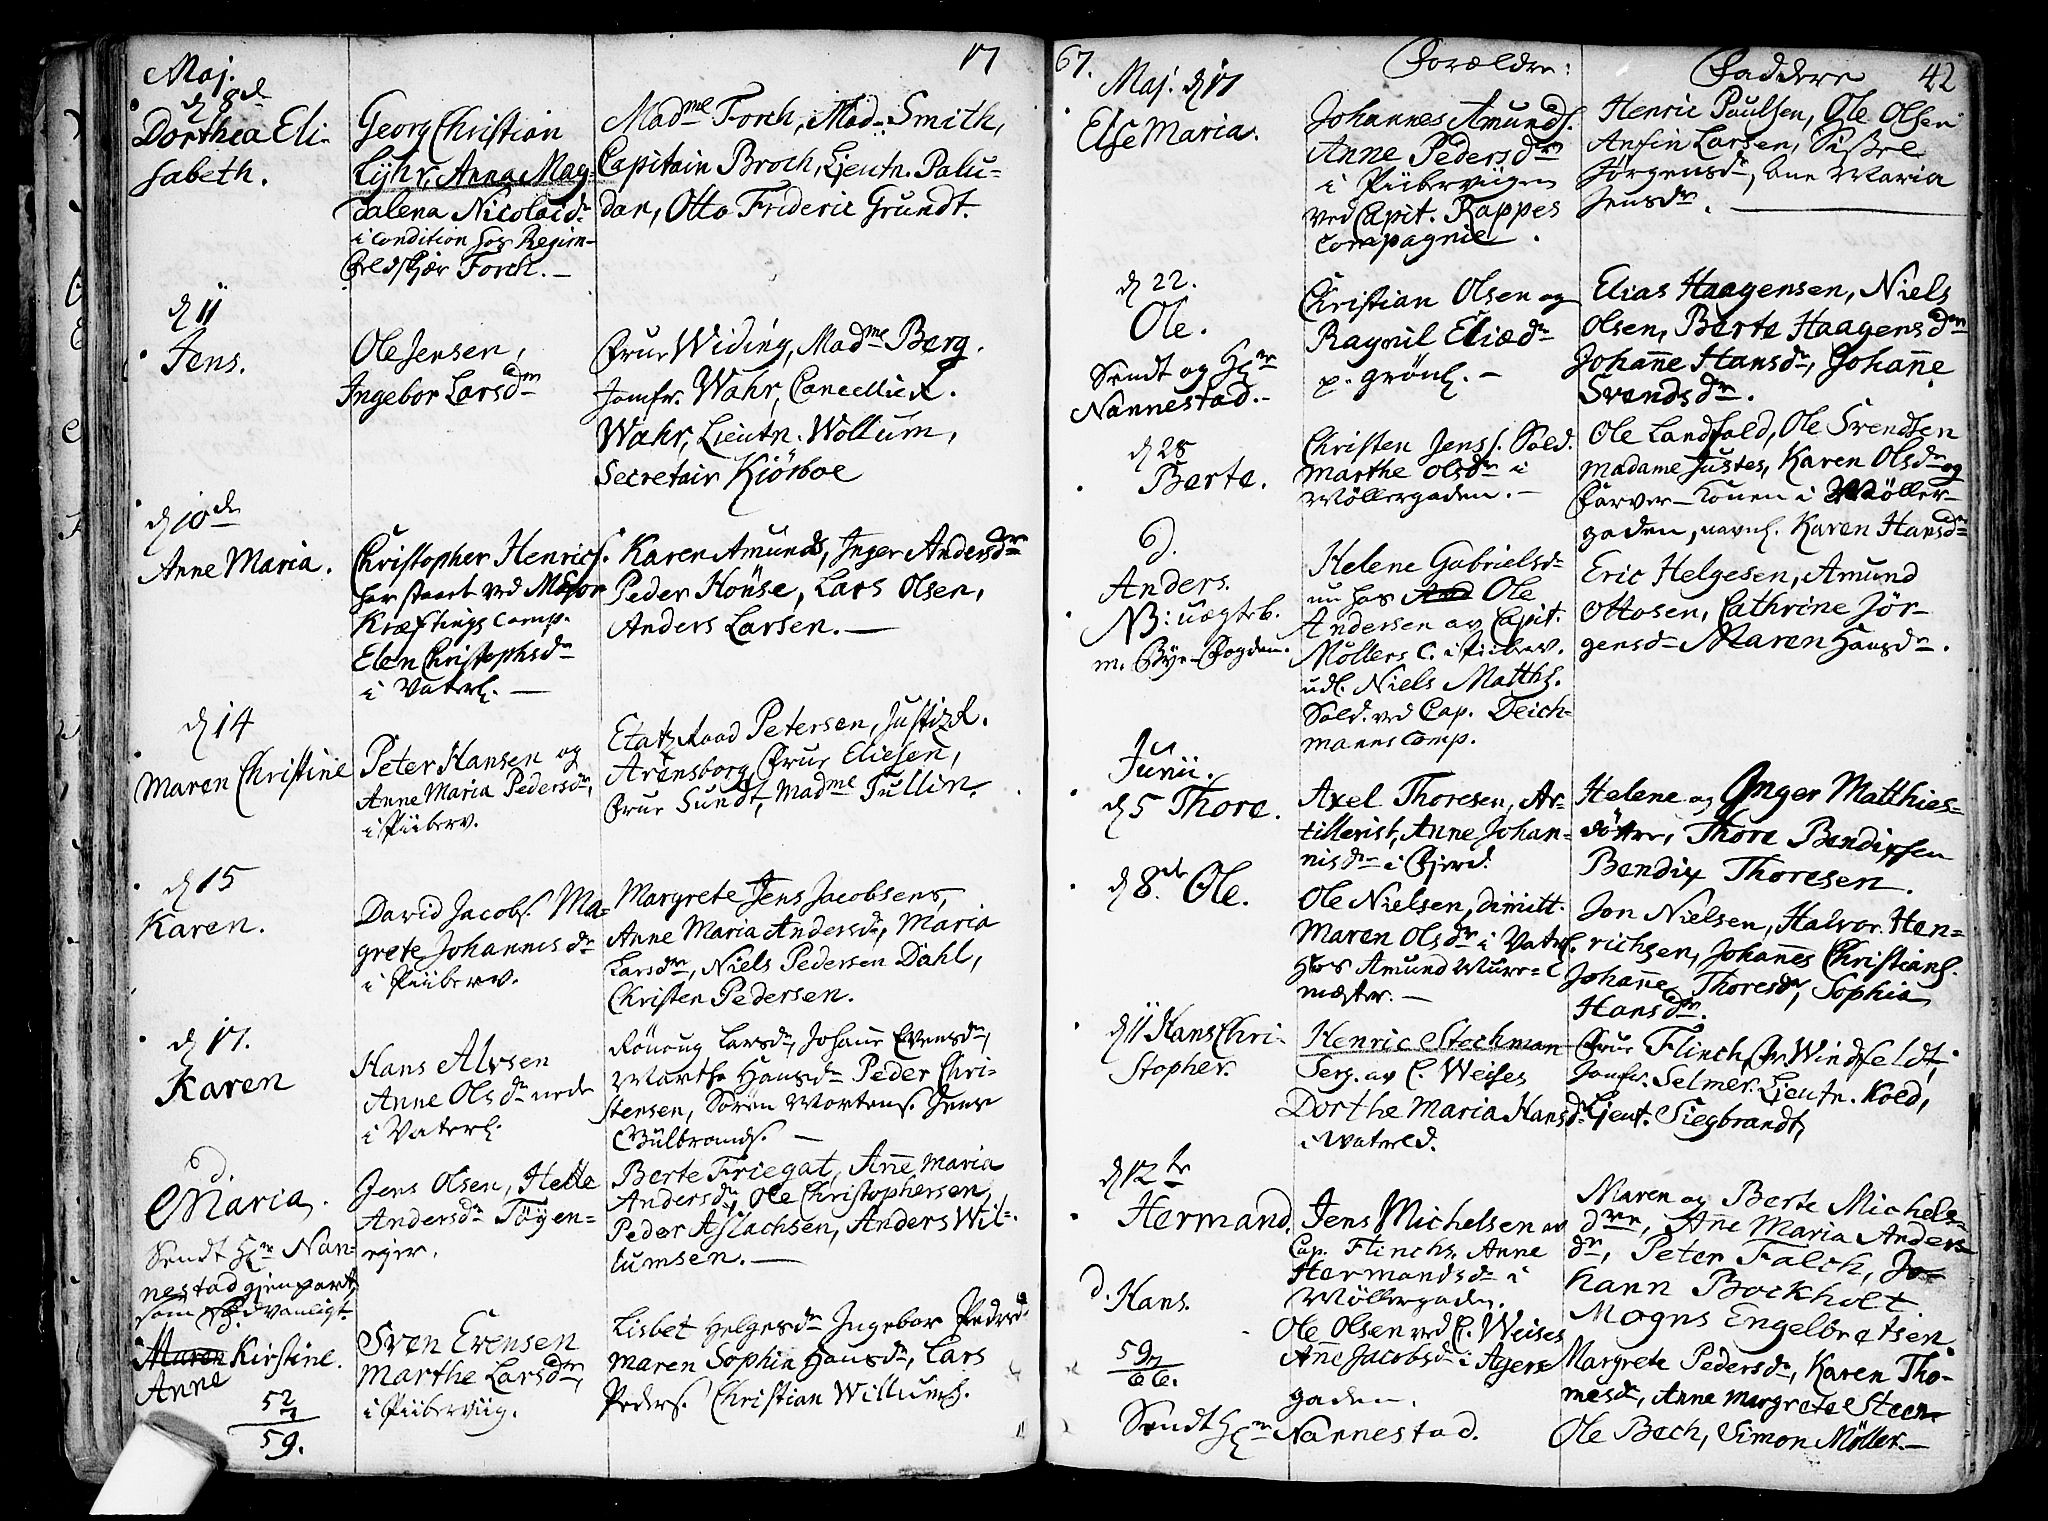 Maj.
17
d 8de
Dorthea Eli-
sabeth.
Georg Christian
Lyhr, Anna Mag-
dalena Nicolaid.
i Condition hos Regim-
Feldskjær Forch. —
Madme Forch, Mad. Smith,
Capitain Broch, Lieutn. Palu-
dan, Otto Frideric Grundt.
d 11
Jens.
Ole Jensen,
Ingebor Larsdr
Frue Widing, Madme Berg.
Jomfr. Wahr, Cancellie R.
Wahr, Lieutn. Wollum,
Secretair Kiörboe
d 10de
Anne Maria.
Christopher Henrics.
har staaet ved Major
Kræftings Comp.
Elen Christophsdr
i Vaterl. —
Karen Amunds, Inger Andersdr
Peder Höuse, Lars Olsen,
Anders Larsen. —
d 14
Maren Christine
Peter Hansen og
Anne Maria Pedersdr,
i Piiberv.
Etatz Raad Petersen, Justiz R.
Arensborg, Frue Eliesen,
Frue Sundt, Madme Tullin.
d 15
Karen.
David Jacobs. Ma-
grete Johannisdr
i Piiberv.
Margrete Jens Jacobsens,
Anne Maria Andersdr, Maria
Larsdr, Niels Pedersen Dahl,
Christen Pedersen.
d 17.
Karen
Hans Alvsen
Anne Olsdr nede
i Vaterl.
Rönoug Larsdr, Johañe Evensdr,
Marthe Hansdr Peder Chri-
stensen, Sören Mortens. Jens
Gulbrands. —
d.
Maria.
Sendt Hr Nan-
nestad gjenpart,
som sædvanligt.
Jens Olsen, Helle
Andersdr Töyen-
ejer.
Berte Friegat, Añe Maria
Andersdr, Ole Christophersen,
Peder Aslachsen, Anders Wil-
lumsen. —
Maren Kirstine.
Anne
Sven Evensen
Marthe Larsdr,
i Piiberviig.
Lisbet Helgesdr Ingebor Pedersd.
Maren Sophia Hansdr, Lars
Peders. Christian Willums.
52
7
59.
67.
Forældre:
Faddere
42
Maj. d 17
Else Maria.
Johannes Amunds.
Anne Pedersdr
i Piiberviigen
ved Capit. Rappes
Compagnie.
Henric Paulsen, Ole Olsen
Anfin Larsen, Sißel
Jørgensdr, Ane Maria
Jensdr.
d 22.
Ole.
Sendt og Hr
Nannestad.-
Christian Olsen og
Ragnil Eliædr
p. grönl. —
Elias Haagensen, Niels
Olsen, Berte Haagensdr
Johañe Hansdr, Johañe
Svendsdr.
d 28
Berte.
Christen Jenss. Sold.
Marthe Olsdr i
Möllergaden. —
Ole Landfald, Ole Svendsen
Madame Justes, Karen Olsdr og
Farver-Konen i Möller-
gaden, navnl. Karen Hansdr
d.
Anders.
NB: uægteb.
m. Bye-Fogden.
Helene Gabrielsdr
nu hos Ole
Andersen av Capit.
Möllers C. i Piiberv.
udl. Niels Matths.
Sold. ved Cap. Deich-
manns Comp.
Eric Helgesen, Amund
Ottosen, Cathrine Jör-
gensdr Maren Hansdr.
Junii.
d 5 Thore.
Axel Thoresen, Ar-
tillerist, Anne Johan-
nisdr i Fjerd.
Helene og Inger Matthies-
döttre, Thore Bendixsen
Bendix Thoresen.
d 8de Ole.
Ole Nielsen, dimitt.
Maren Olsdr i Vaterl.
hos Amund Muur-
mæster. —
Jon Nielsen, Halvor Hen-
richsen, Johañes Christians.
Johañe Thoresdr, Sophia
Hansdr.
d 11 Hans Chri-
stopher.
Henric Stechman
Serg. av C. Weises
Dorthe Maria Hansdr
i Waterld.
Frue Flinch Fr. Windfeldt,
Jomfr. Selmer. Lieutn. Kold,
Lieut. Siegbrandt,
d 12te
Hermand.
Jens Michelsen av
Cap. Flinchs, Anne
Hermandsdr i
Möllergaden.
Maren og Berte Michels-
dre, Añe Maria Anders-
dr, Peter Falch, Jo-
hann Bockholt.
Mogns Engelbretsen
d. Hans.
Ole Olsen ved C. Weises
Ane Jacobsdr i Agers-
gaden.
Margrete Pedersdr, Karen Tho-
mesdr, Anne Margrete Steen
Ole Bech, Simon Möller. —
59
7
66.
Sendt Hr Nannestad.